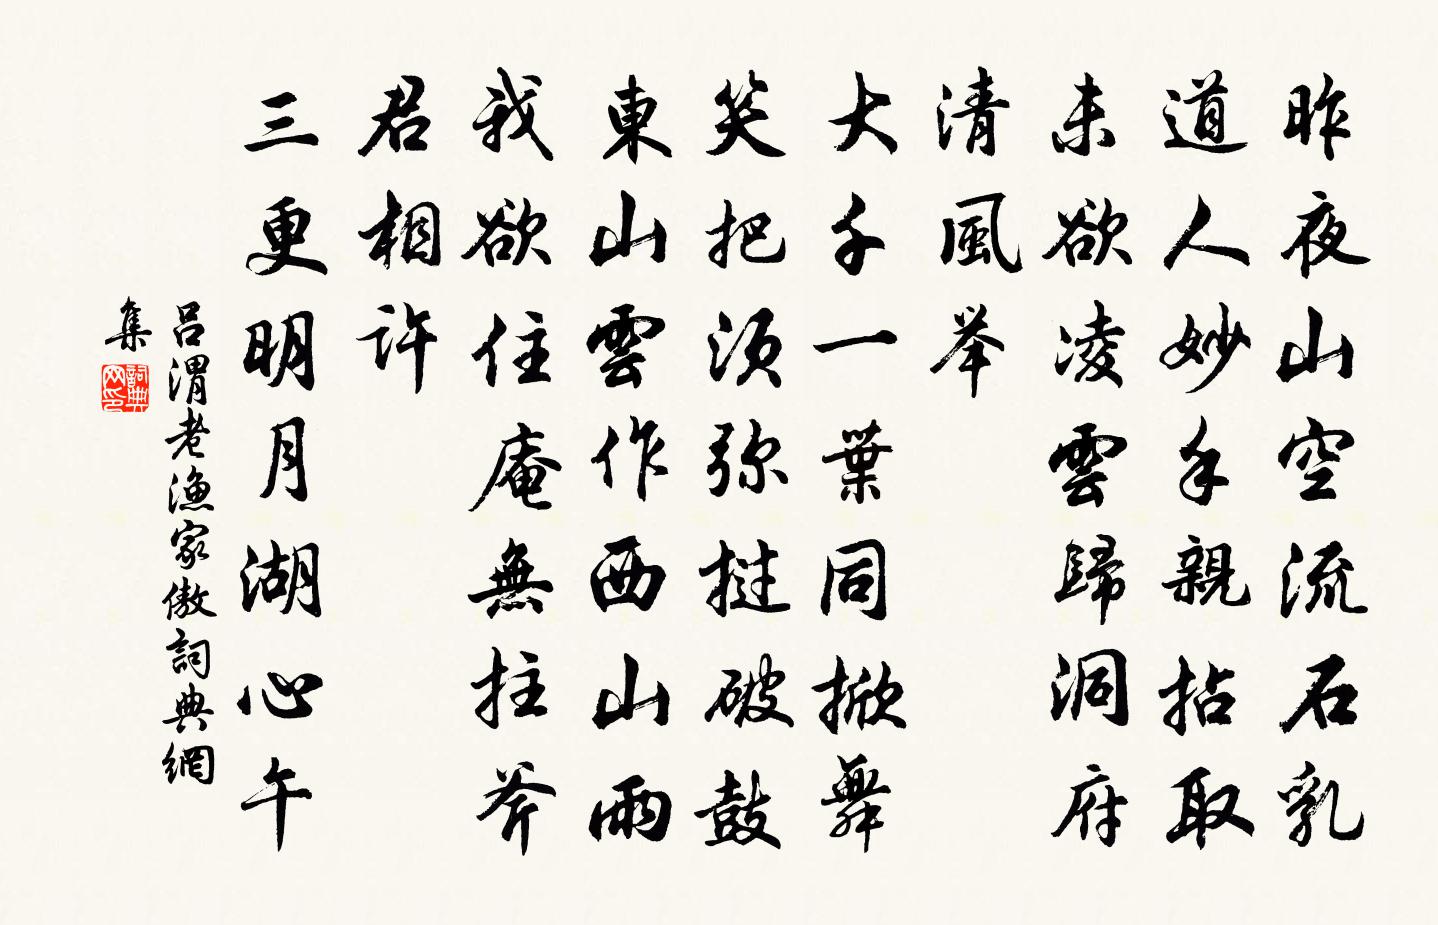 昨夜山空流石乳
道人妙手親拈取
未欲凌雲歸洞府
清風举
大千一葉同掀舞
笑把须弥挝破鼓
東山雲作西山雨
我欲住庵無拄斧
君相許
三更明月湖心午
呂渭老漁家傲詞典網
集
詞典网印